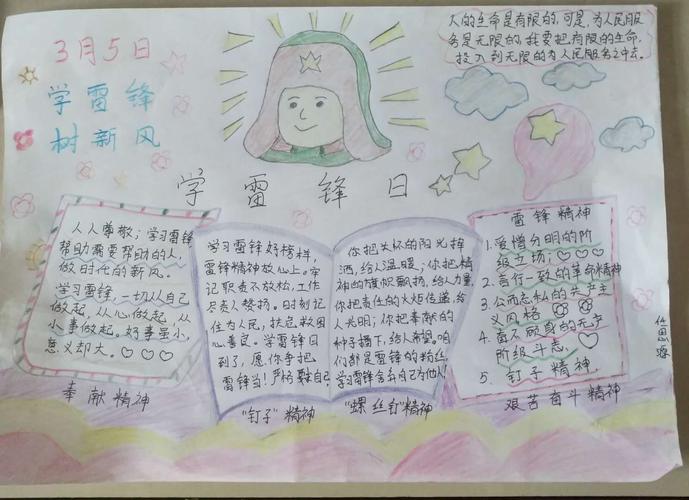 3月5日
学雷锋
树新风
人的生命是有限的,可是,为人民服
务是无限的,我要把有限的生命,
投入到无限的为人民服务之中去。
学雷锋日
人人尊敬;学习雷锋
帮助需要帮助的人,
做时代的新风。
学习雷锋,一切从自己
做起,从心做起,从
小事做起。好事虽小,
意义却大。
奉献精神
学习雷锋好榜样,
雷锋精神放心上。牢
记职责不放松,工作
尽责人赞扬。时刻记
住为人民,扶危救困
心善良。学雷锋日
到了,愿你争把
雷锋当!严格要求自己
"钉子"精神
你把关怀的阳光挥
洒,给人温暖;你把精
神的旗帜飘扬,给人力量,
你把责任的火炬传递,给
人光明;你把奉献的
种子播下,给人希望。咱
们都是雷锋的粉丝,
学习雷锋舍己为他人
"螺丝钉"精神
雷锋精神
1.爱憎分明的阶
级立场;
2.言行一致的革命精神
3.公而忘私的共产主
义风格
4.奋不顾身的无产
阶级斗志。
5.钉子精神.
艰苦奋斗精神